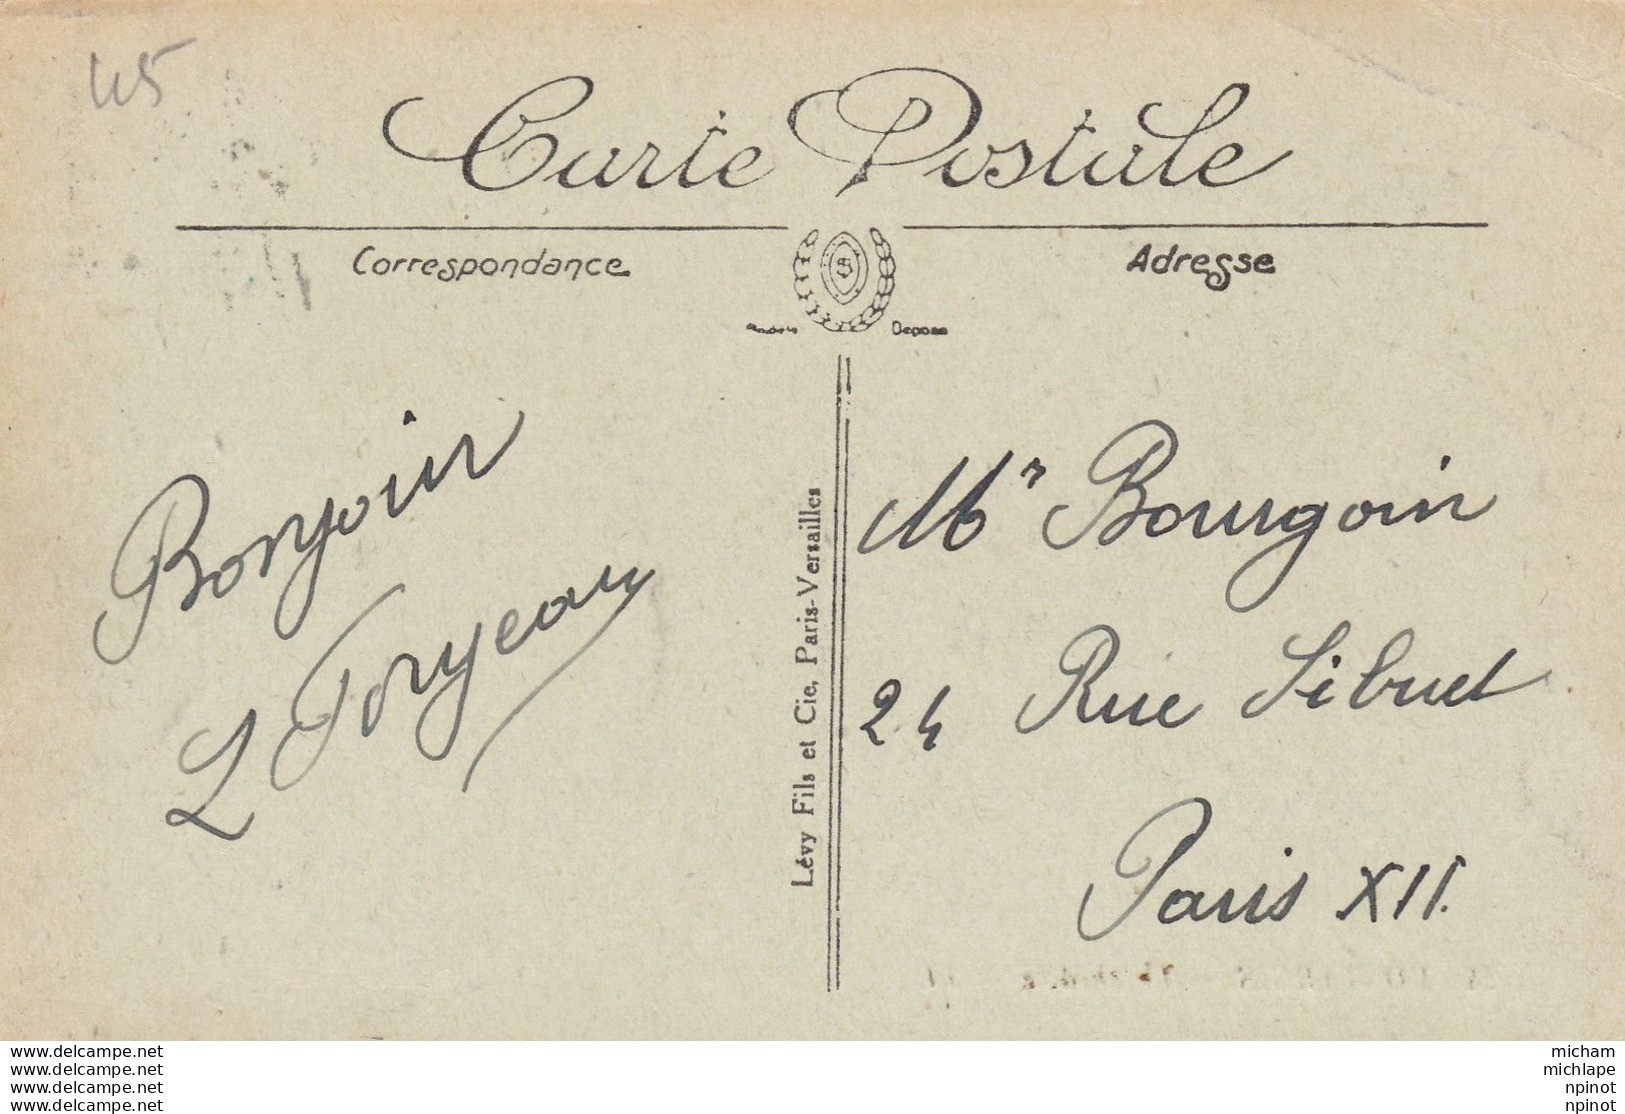 45
Carte Postale
Correspondance
Adresse
S
Déposé
Bonjour
L Forgeau
Lévy Fils et Cie, Paris-Versailles
Mr Bourgoin
24 Rue Sibuet
Paris XII.
www.delcampe.net
www.delcampe.net
www.delcampe.net
www.delcampe.net
micham
michlape
npinot
npinot